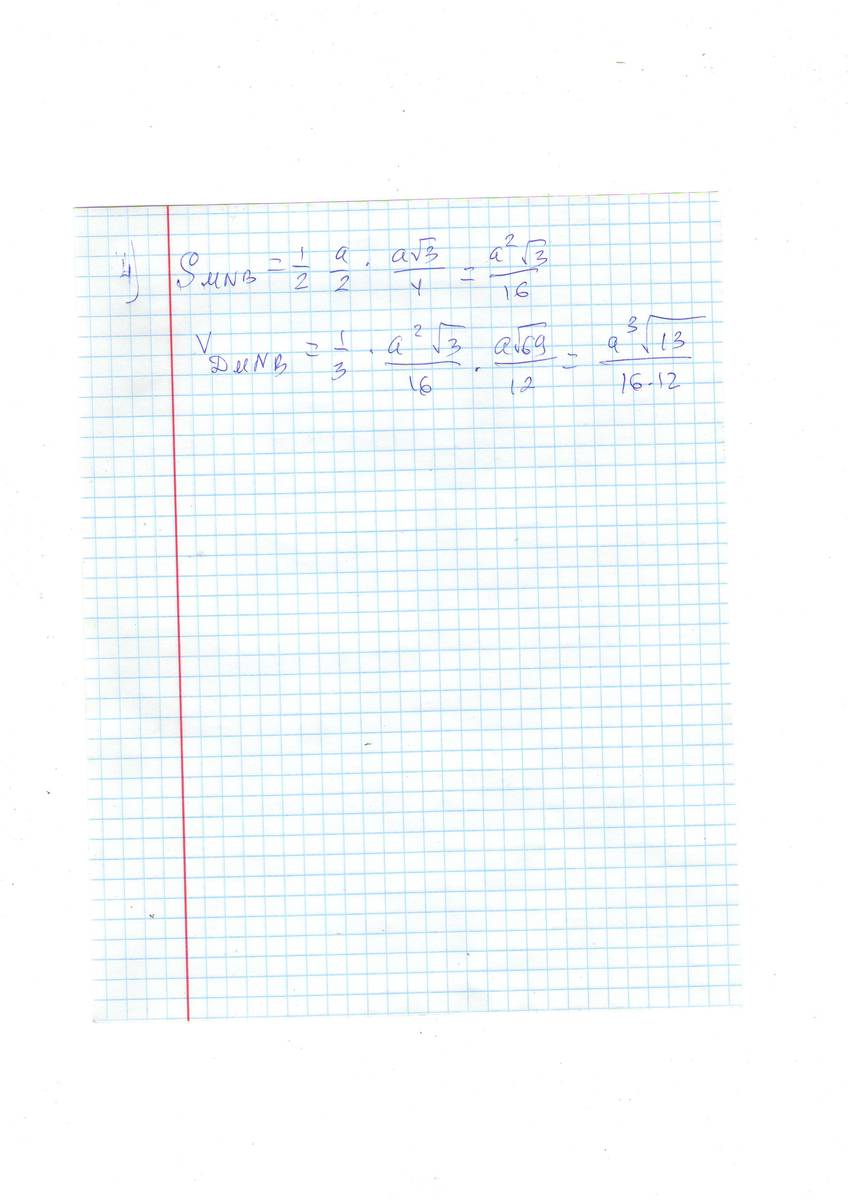 4) S_MNB = 1/2 a/2 · a√3/4 = a²√3/16
V_DMNB = 1/3 · a²√3/16 · a√69/12 = a³√13/16·12